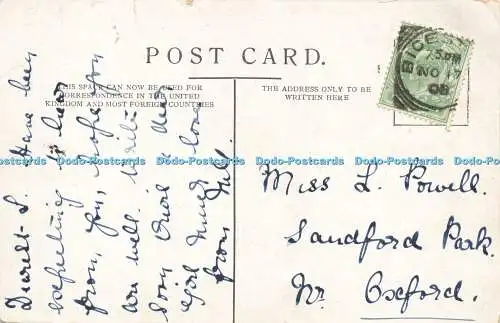 POST CARD.
THIS SPACE CAN NOW BE USED FOR
CORRESPONDENCE IN THE UNITED
KINGDOM AND MOST FOREIGN COUNTRIES
THE ADDRESS ONLY TO BE
WRITTEN HERE
5 PM
NO 17
08
Dearest L. Have been
expecting to hear
from you, hope you
are well. Write
soon dear a
much love
from Nell.
Miss L. Powell.
Sandford Park.
Nr. Oxford.
Dodo-Postcards Dodo-Postcards Dodo-Postcards Dodo-Postcards Dodo-Postcards